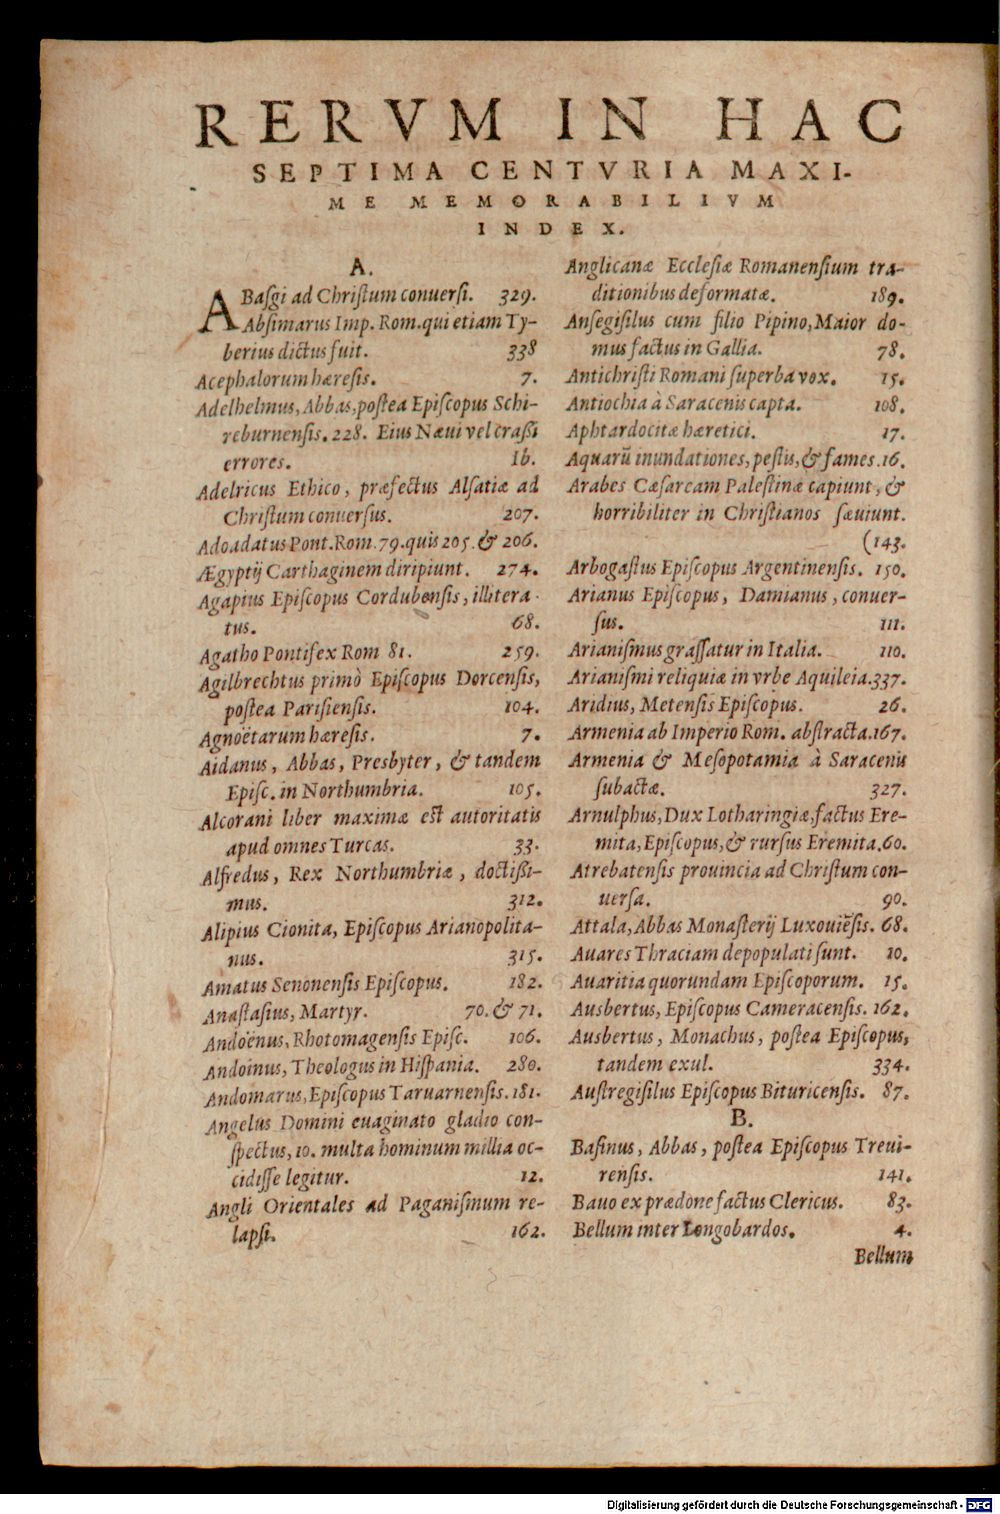 RERVM IN HAC
SEPTIMA CENTVRIA MAXI-
ME MEMORABILIVM
INDEX.
A.
ABasgi ad Christum conuersi. 329.
Absimarus Imp. Rom. qui etiam Ty-
berius dictus fuit. 338
Acephalorum hæresis. 7.
Adelhelmus, Abbas, postea Episcopus Schi-
reburnensis. 228. Eius Næui vel craßi
errores. Ib.
Adelricus Ethico, præfectus Alsatiæ ad
Christum conuersus. 207.
Adoadatus Pont. Rom. 79. quis 205. & 206.
Ægyptij Carthaginem diripiunt. 274.
Agapius Episcopus Cordubensis, illitera-
tus. 68.
Agatho Pontifex Rom 81. 259.
Agilbrechtus primò Episcopus Dorcensis,
postea Parisiensis. 104.
Agnoëtarum hæresis. 7.
Aidanus, Abbas, Presbyter, & tandem
Episc. in Northumbria. 105.
Alcorani liber maximæ est autoritatis
apud omnes Turcas. 33.
Alfredus, Rex Northumbriæ, doctißi-
mus. 312.
Alipius Cionita, Episcopus Arianopolita-
nus. 315.
Amatus Senonensis Episcopus. 182.
Anastasius, Martyr. 70. & 71.
Andoënus, Rhotomagensis Episc. 106.
Andoinus, Theologus in Hispania. 280.
Andomarus, Episcopus Taruarnensis. 181.
Angelus Domini euaginato gladio con-
spectus, 10. multa hominum millia oc-
cidisse legitur. 12.
Angli Orientales ad Paganismum re-
lapsi. 162.
Anglicanæ Ecclesiæ Romanensium tra-
ditionibus deformatæ. 189.
Ansegisilus cum filio Pipino, Maior do-
mus factus in Gallia. 78.
Antichristi Romani superba vox. 15.
Antiochia à Saracenis capta. 108.
Aphtardocitæ hæretici. 17.
Aquarū inundationes, pestis, & fames. 16.
Arabes Cæsaream Palestinæ capiunt, &
horribiliter in Christianos sæuiunt.
(143.
Arbogastus Episcopus Argentinensis. 150.
Arianus Episcopus, Damianus, conuer-
sus. 111.
Arianismus grassatur in Italia. 110.
Arianismi reliquiæ in vrbe Aquileia. 337.
Aridius, Metensis Episcopus. 26.
Armenia ab Imperio Rom. abstracta. 167.
Armenia & Mesopotamia à Saracenis
subactæ. 327.
Arnulphus, Dux Lotharingiæ, factus Ere-
mita, Episcopus, & rursus Eremita. 60.
Atrebatensis prouincia ad Christum con-
uersa. 90.
Attala, Abbas Monasterij Luxouiēsis. 68.
Auares Thraciam depopulati sunt. 10.
Auaritia quorundam Episcoporum. 15.
Ausbertus, Episcopus Cameracensis. 162.
Ausbertus, Monachus, postea Episcopus,
tandem exul. 334.
Austregisilus Episcopus Bituricensis. 87.
B.
Basinus, Abbas, postea Episcopus Treui-
rensis. 141.
Bauo ex prædone factus Clericus. 83.
Bellum inter Longobardos. 4.
Bellum
Digitalisierung gefördert durch die Deutsche Forschungsgemeinschaft - DFG